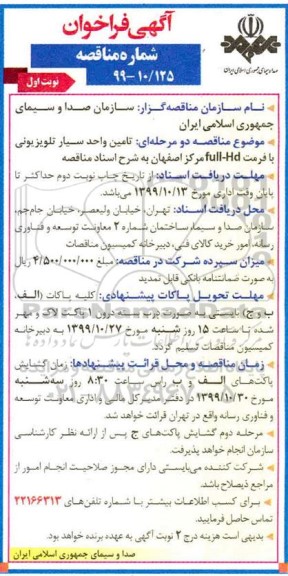 آگهی فراخوان
شماره مناقصه
۹۹-۱۰/۱۲۵
نوبت اول
صدا و سیمای جمهوری اسلامی ایران
نام سازمان مناقصه‌گزار: سازمان صدا و سیمای
جمهوری اسلامی ایران
موضوع مناقصه دو مرحله‌ای: تامین واحد سیار تلویزیونی
با فرمت full-Hd مرکز اصفهان به شرح اسناد مناقصه
مهلت دریافت اسناد: از تاریخ چاپ نوبت دوم حداکثر تا
پایان وقت اداری مورخ ۱۳۹۹/۱۰/۱۳ می‌باشد.
محل دریافت اسناد: تهران، خیابان ولیعصر، خیابان جام‌جم،
سازمان صدا و سیما، ساختمان شماره ۲ معاونت توسعه و فناوری
رسانه، امور خرید کالای فنی، دبیرخانه کمیسیون مناقصات
میزان سپرده شرکت در مناقصه: مبلغ ۴/۵۰۰/۰۰۰/۰۰۰ ریال
به صورت ضمانتنامه بانکی قابل تمدید
مهلت تحویل پاکات پیشنهادی: کلیه پاکات (الف،
ب، ج) بایستی به صورت دربسته درون پاکت لاک و مهر
شده تا ساعت ۱۵ روز شنبه مورخ ۱۳۹۹/۱۰/۲۷ به دبیرخانه
کمیسیون مناقصات تسلیم گردد.
زمان مناقصه و محل قرائت پیشنهادها: زمان گشایش
پاکت‌های الف و ب رأس ساعت ۸:۳۰ روز سه‌شنبه
مورخ ۱۳۹۹/۱۰/۳۰ در دفتر مدیرکل مالی و اداری معاونت توسعه
و فناوری رسانه واقع در تهران قرائت خواهد شد.
مرحله دوم گشایش پاکت‌های ج پس از ارائه نظر کارشناسی
سازمان انجام خواهد پذیرفت.
شرکت کننده می‌بایستی دارای مجوز صلاحیت انجام امور از
مراجع ذیصلاح باشد.
برای کسب اطلاعات بیشتر با شماره تلفن‌های ۲۲۱۶۶۳۱۳
تماس حاصل فرمایید.
بدیهی است هزینه درج ۲ نوبت آگهی به عهده برنده خواهد بود.
صدا و سیمای جمهوری اسلامی ایران